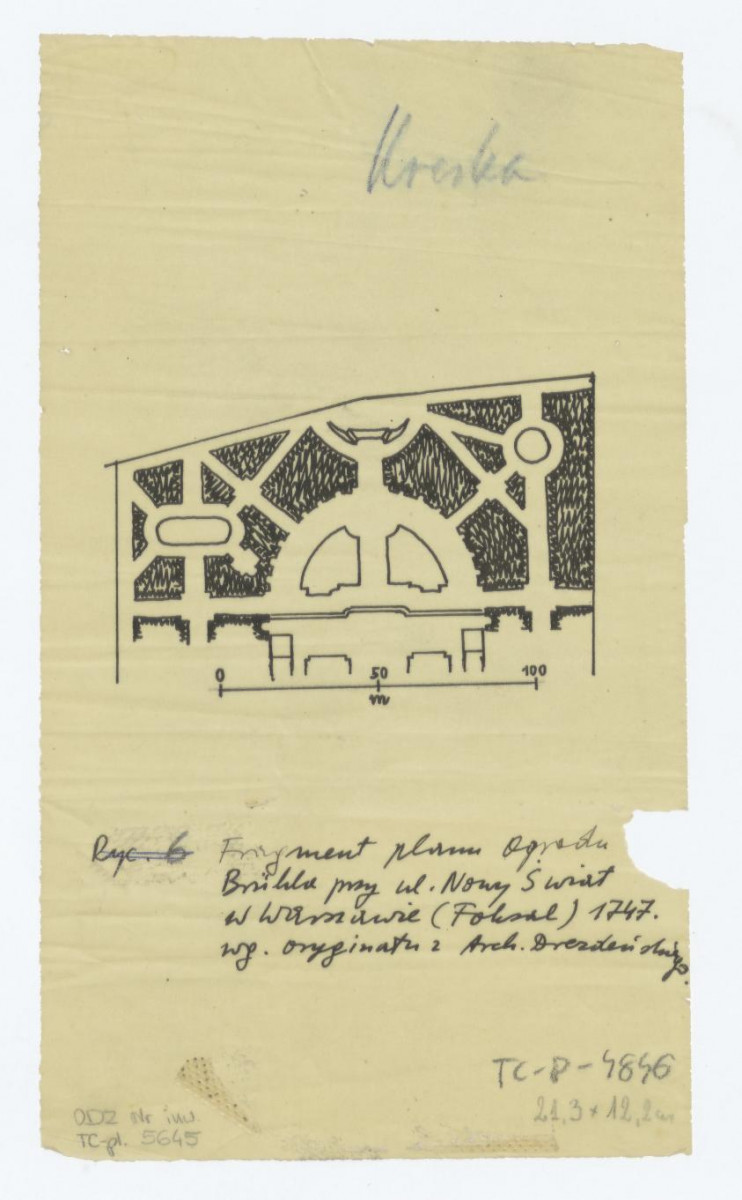 Kreska
0 50 100
m
Ryc. 6 Fragment planu Ogrodu
Brühla przy ul. Nowy Świat
w Warszawie (Foksal) 1747.
wg. oryginału z Arch. Drezdeńskiego.
TC-P-4846
21,3 x 12,2 cm
ODZ Nr inw.
TC-pl. 5645